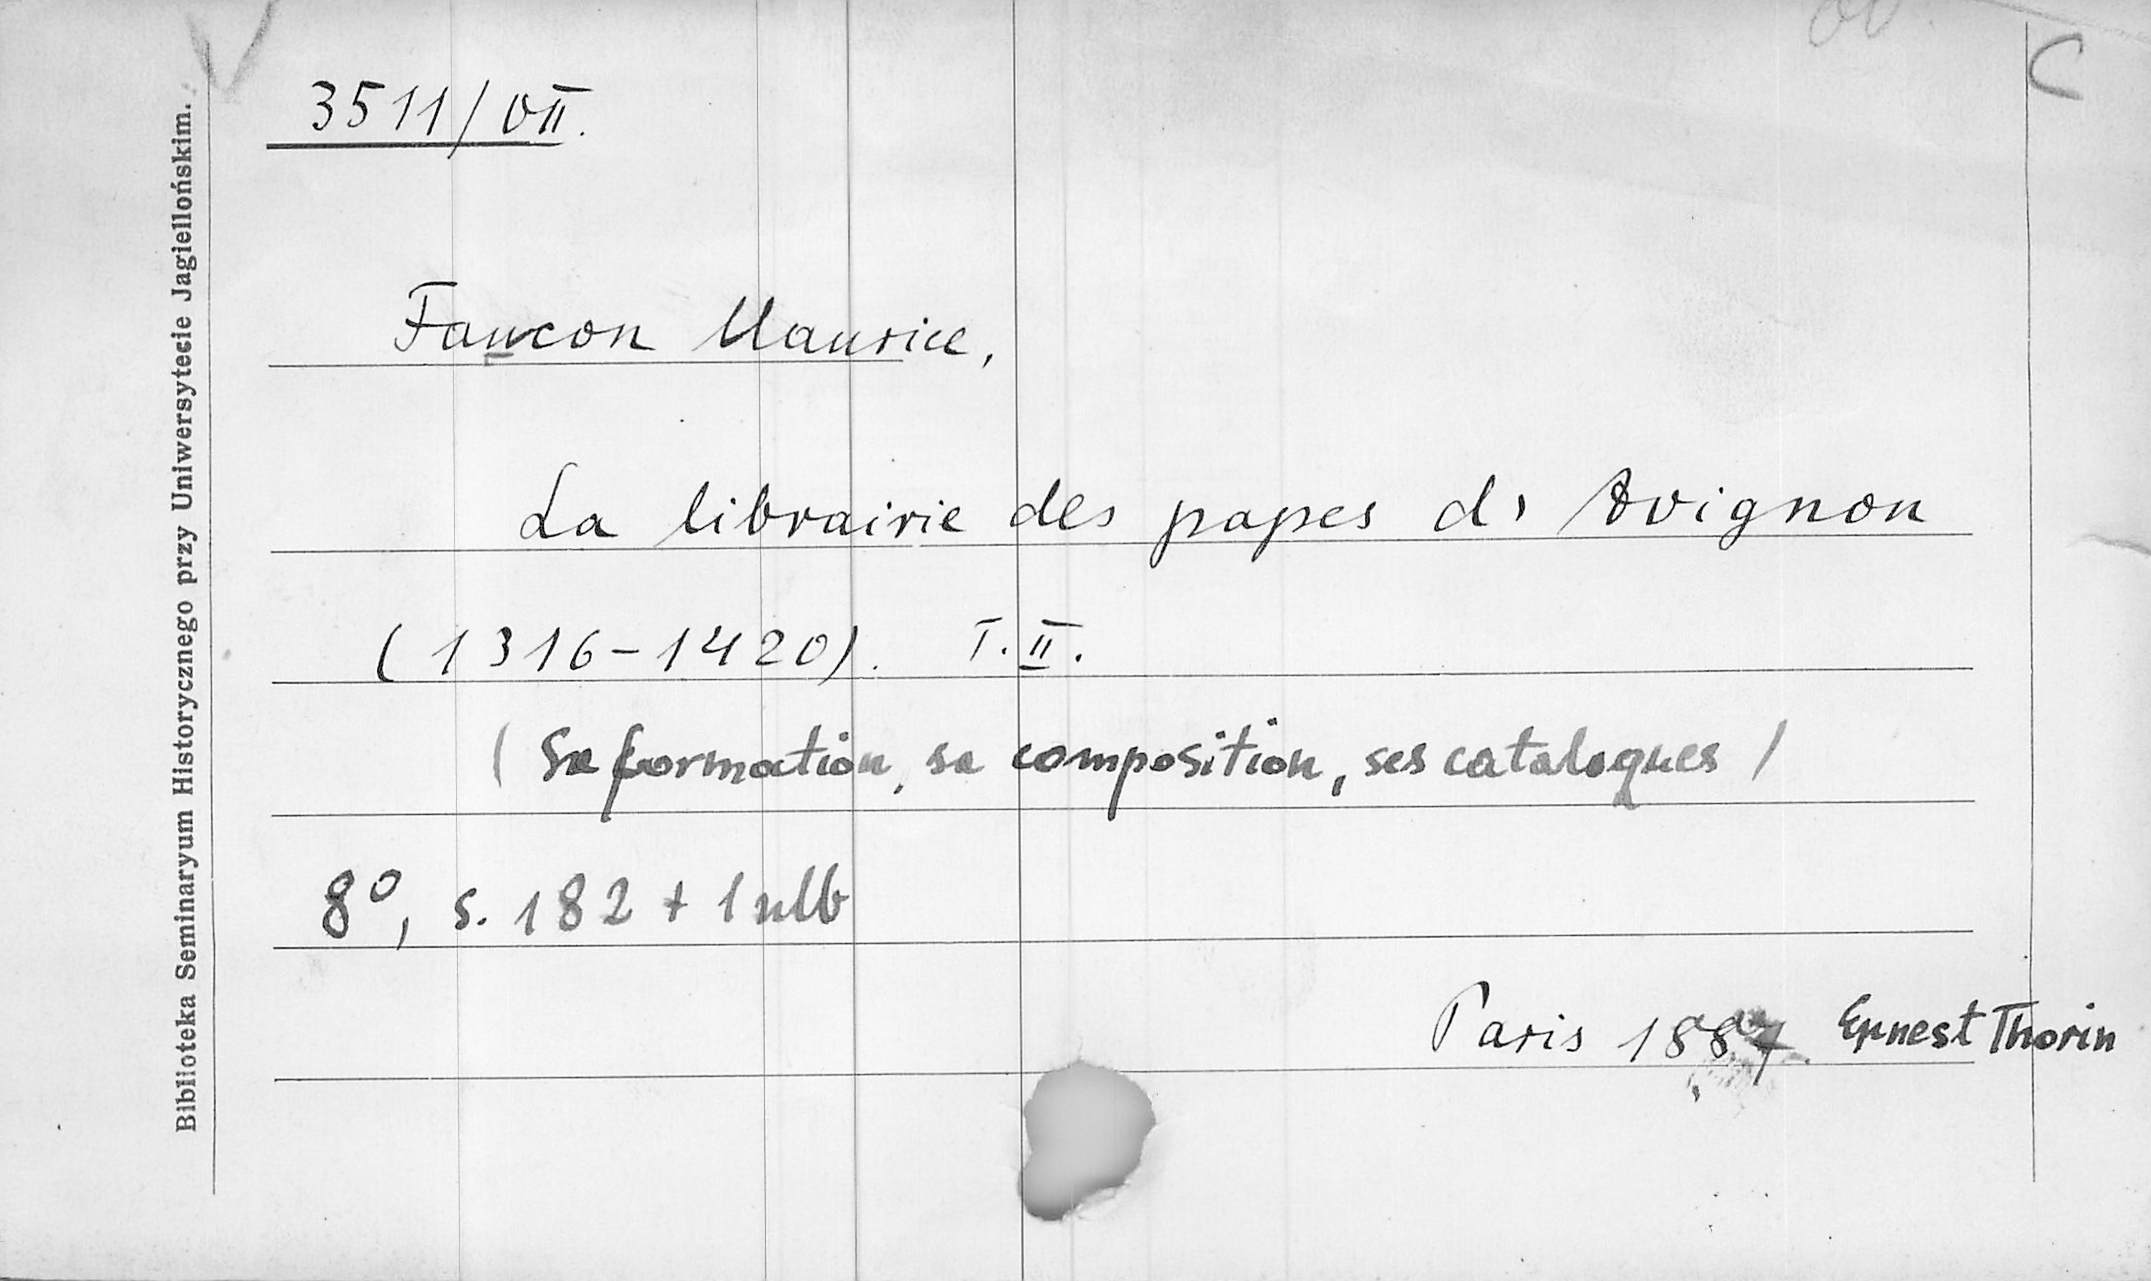 C
3511/VII.
Faucon Maurice,
La librairie des papes d' Avignon
(1316-1420). T. II.
(Sa formation, sa composition, ses catalogues)
8°, s. 182 + 1 nlb
Paris 1887 Ernest Thorin
Biblioteka Seminaryum Historycznego przy Uniwersytecie Jagiellońskim.